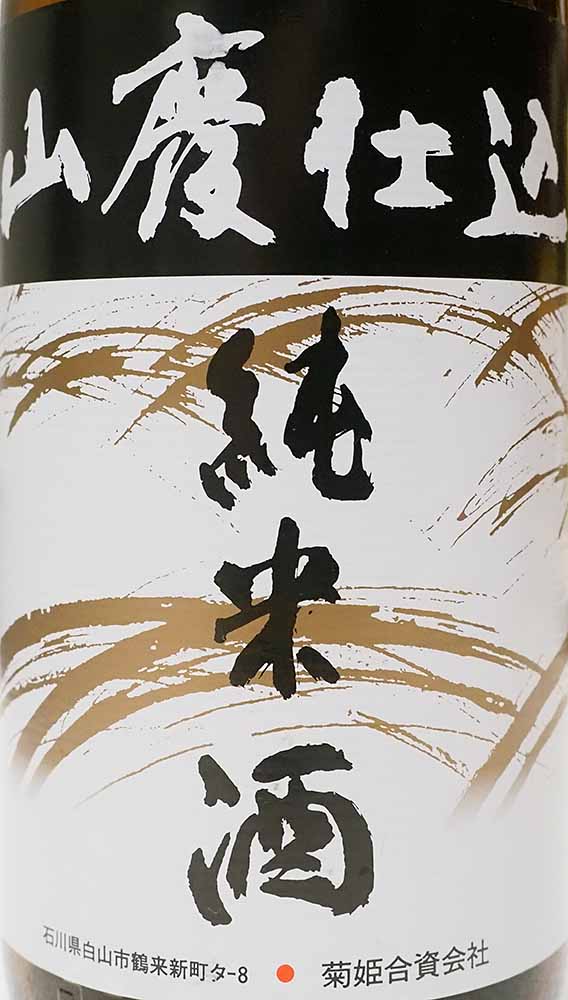 山廃仕込
純米酒
石川県白山市鶴来新町タ-8 ● 菊姫合資会社